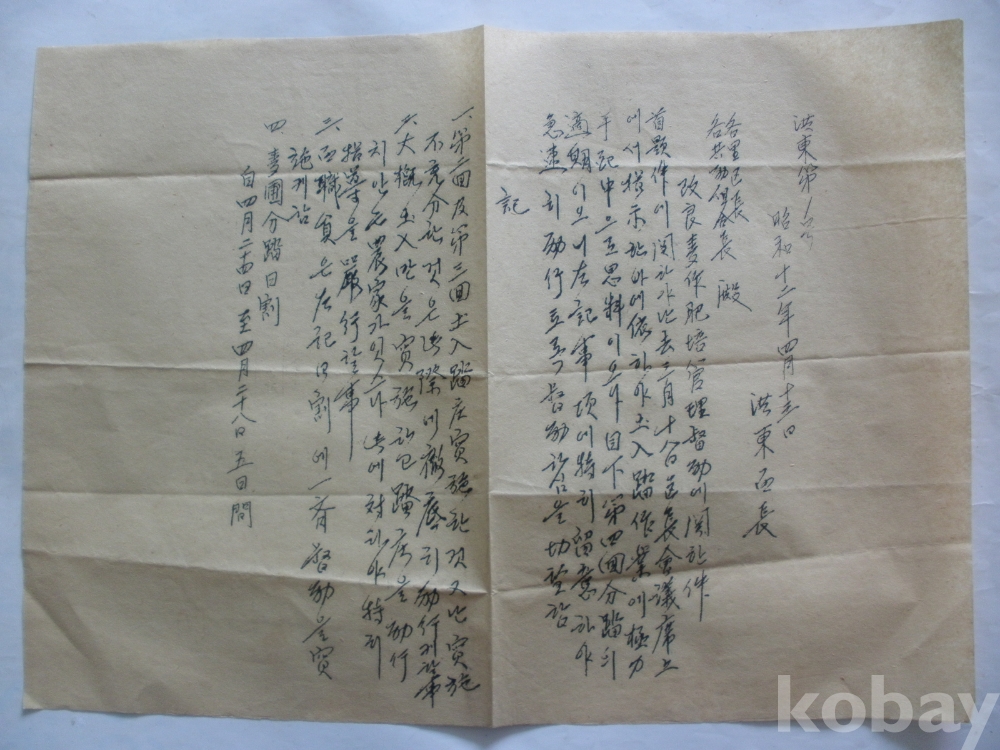 洪東第 号
昭和十二年四月十三日
洪東面長
各里區長
各共励組合長 殿
改良麦作肥培管理督励에関한件
首題件에関하야는去三月十八日區長會議席上
에서指示한바에依하야土入踏作業에極力
手配中으로思料이오나目下第四回分踏의
適期이오니左記事項에特히留意하야
急速히励行토록督励하심을切望함
記
一、第二回及第三回土入踏圧實施한것又는實施
不充分한것은此際에徹底히励行케할事
二、大概土入만을實施하고踏圧을励行
치안은農家가잇스니此에対하야特히
指導를嚴行할事
三、面職員은左記日割에一齊督励를實
施케함
四、麦圃分踏日割
自四月二十四日至四月二十八日五日間
kobay